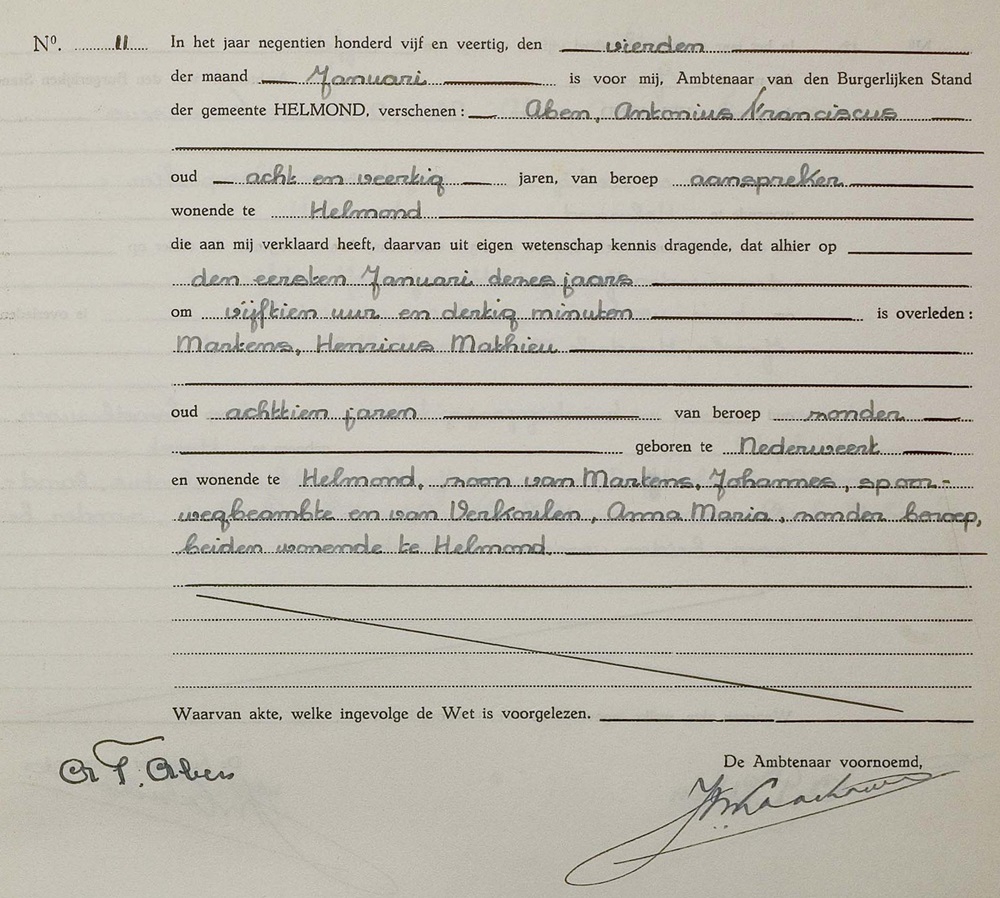 Nº. 11 In het jaar negentien honderd vijf en veertig, den vierden
der maand Januari is voor mij, Ambtenaar van den Burgerlijken Stand
der gemeente HELMOND, verschenen: Aben, Antonius Franciscus
oud acht en veertig jaren, van beroep aanspreker
wonende te Helmond
die aan mij verklaard heeft, daarvan uit eigen wetenschap kennis dragende, dat alhier op
den eersten Januari dezes jaars
om vijftien uur en dertig minuten is overleden:
Martens, Henricus Mathieu
oud achttien jaren van beroep zonder
geboren te Nederweert
en wonende te Helmond, zoon van Martens, Johannes, spoor-
wegbeambte en van Verkoulen, Anna Maria, zonder beroep,
beiden wonende te Helmond.
Waarvan akte, welke ingevolge de Wet is voorgelezen.
De Ambtenaar voornoemd,
A F. Aben